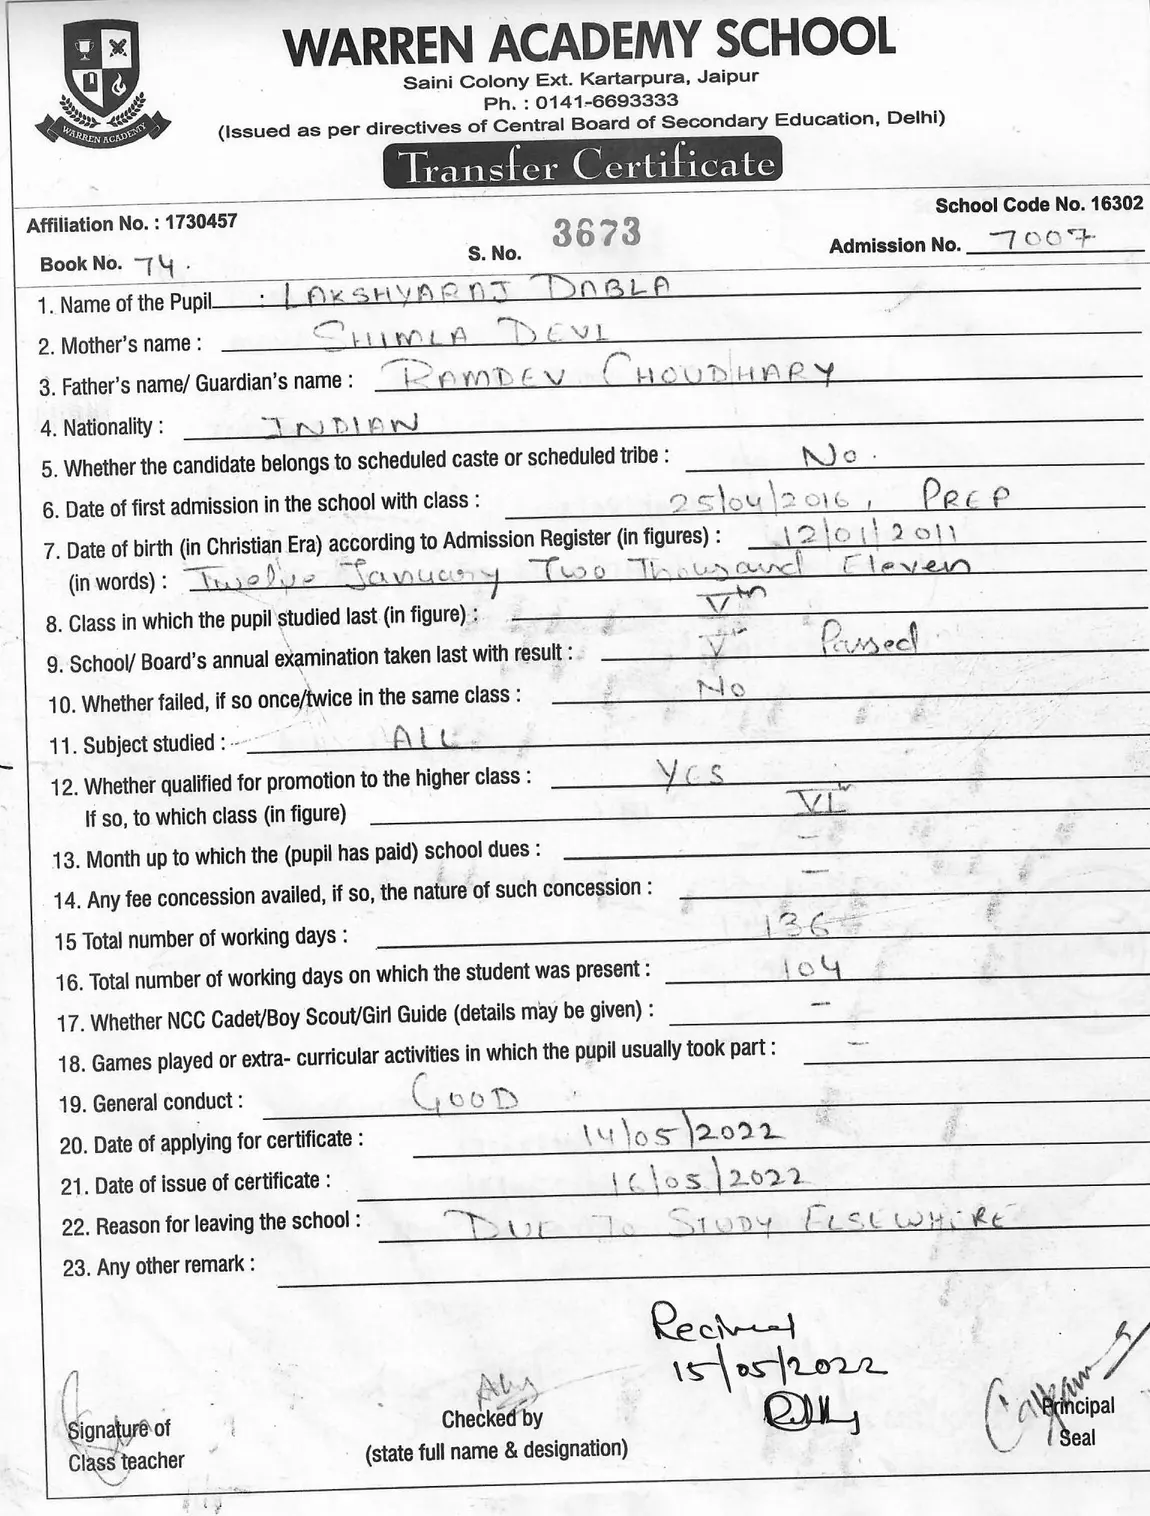 WARREN ACADEMY SCHOOL
Saini Colony Ext. Kartarpura, Jaipur
Ph. : 0141-6693333
(Issued as per directives of Central Board of Secondary Education, Delhi)
WARREN ACADEMY
Transfer Certificate
Affiliation No. : 1730457
School Code No. 16302
Book No. 74.
S. No. 3673
Admission No. 7007
1. Name of the Pupil : LAKSHYARAJ DABLA
2. Mother's name : SHIMLA DEVI
3. Father's name/ Guardian's name : RAMDEV CHOUDHARY
4. Nationality : INDIAN
5. Whether the candidate belongs to scheduled caste or scheduled tribe : No.
6. Date of first admission in the school with class : 25/04/2016, PREP
7. Date of birth (in Christian Era) according to Admission Register (in figures) : 12/01/2011
(in words) : Twelve January Two Thousand Eleven
8. Class in which the pupil studied last (in figure) : Vth
9. School/ Board's annual examination taken last with result : Vth Passed
10. Whether failed, if so once/twice in the same class : No
11. Subject studied : ALL
12. Whether qualified for promotion to the higher class : YES
If so, to which class (in figure) VIth
13. Month up to which the (pupil has paid) school dues : -
14. Any fee concession availed, if so, the nature of such concession : -
15 Total number of working days : 136
16. Total number of working days on which the student was present : 104
17. Whether NCC Cadet/Boy Scout/Girl Guide (details may be given) : -
18. Games played or extra- curricular activities in which the pupil usually took part : -
19. General conduct : GOOD
20. Date of applying for certificate : 14/05/2022
21. Date of issue of certificate : 16/05/2022
22. Reason for leaving the school : DUE TO STUDY ELSEWHERE
23. Any other remark :
Recived
15/05/2022
Signature of
Class teacher
Checked by
(state full name & designation)
Principal
Seal